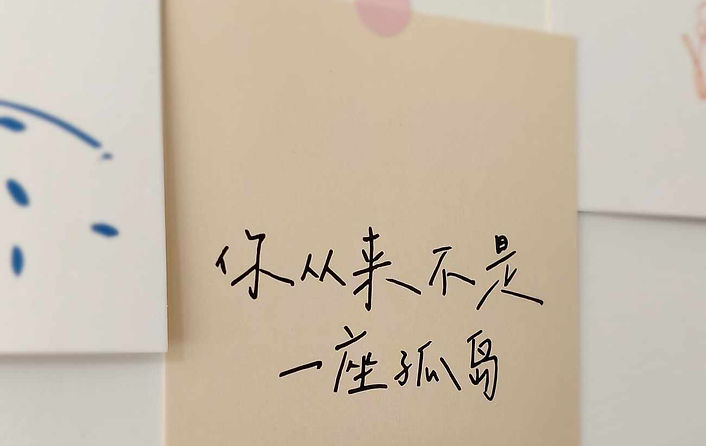 你从来不是
一座孤岛